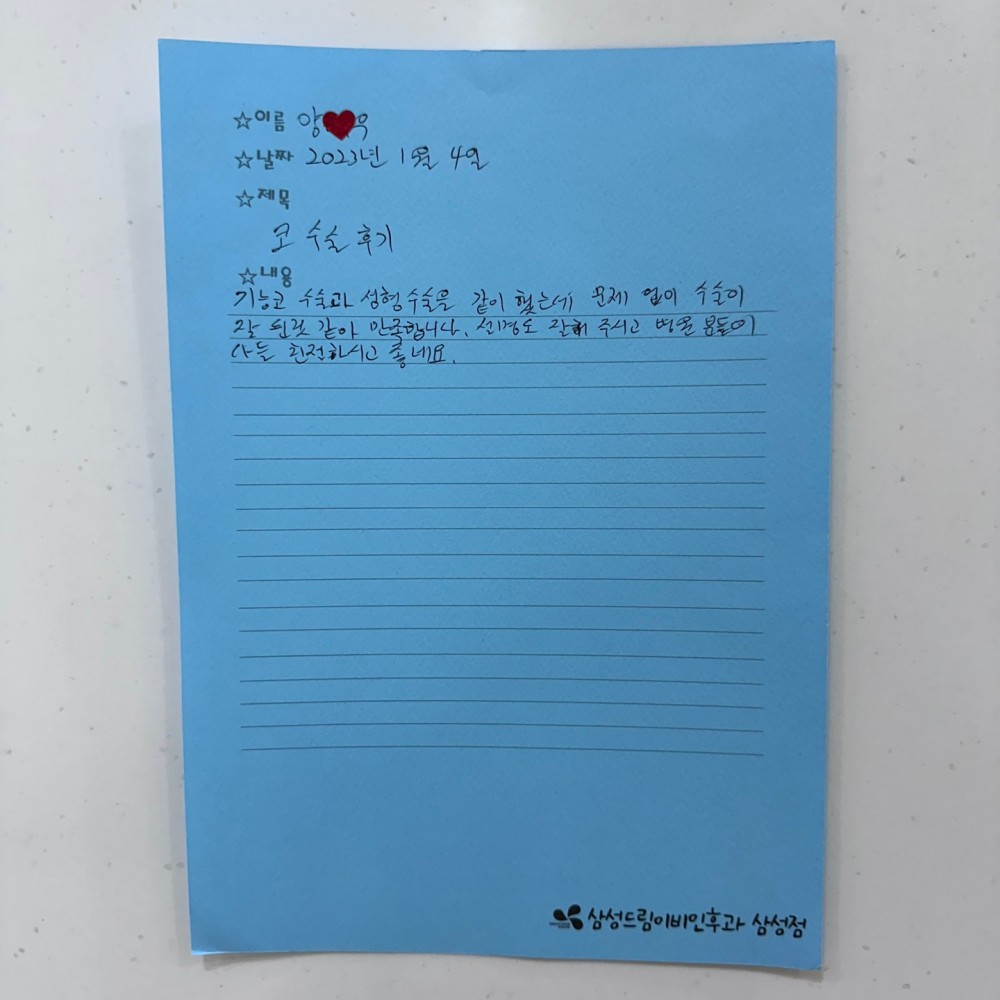 ☆이름 양❤우
☆날짜 2023년 1월 4일
☆제목
코 수술 후기
☆내용
기능코 수술과 성형수술을 같이 했는데 문제 없이 수술이
잘 된것 같아 만족합니다. 설명도 잘해 주시고 병원 분들이
다들 친절하시고 좋네요.
삼성드림이비인후과 삼성점